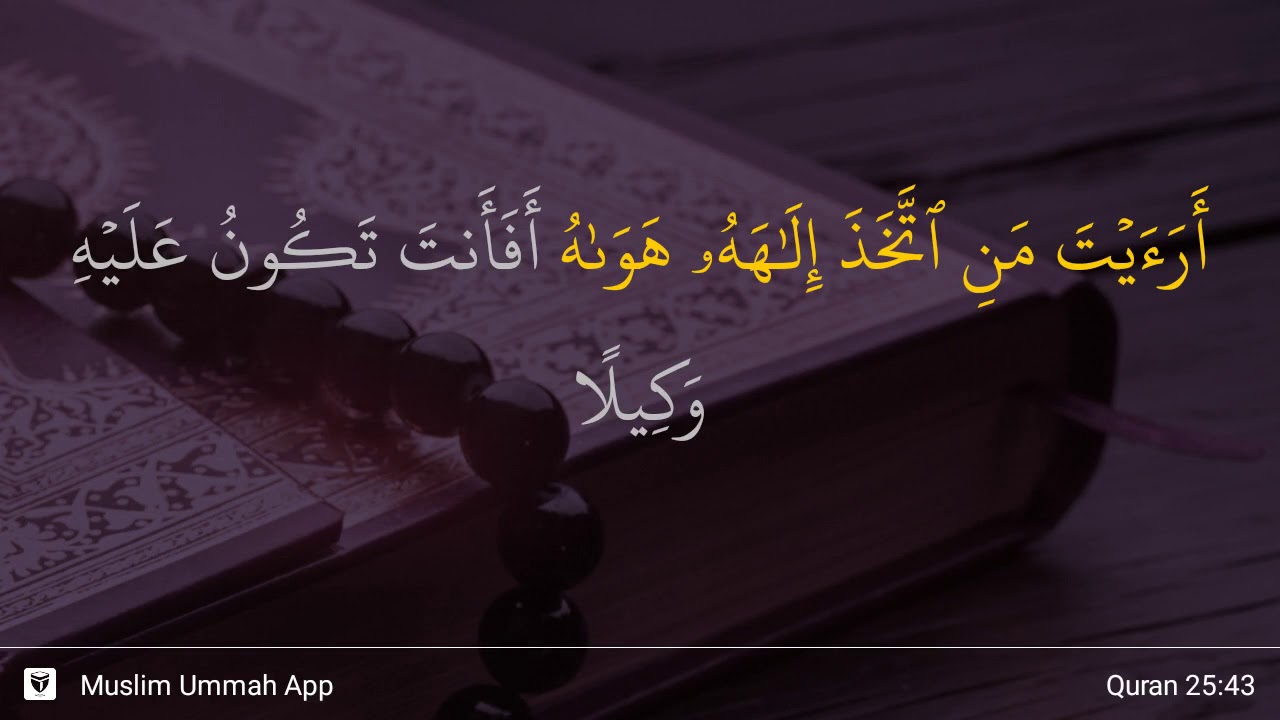 أَرَءَيۡتَ مَنِ ٱتَّخَذَ إِلَٰهَهُۥ هَوَىٰهُ أَفَأَنتَ تَكُونُ عَلَيۡهِ
وَكِيلًا
Muslim Ummah App
Quran 25:43